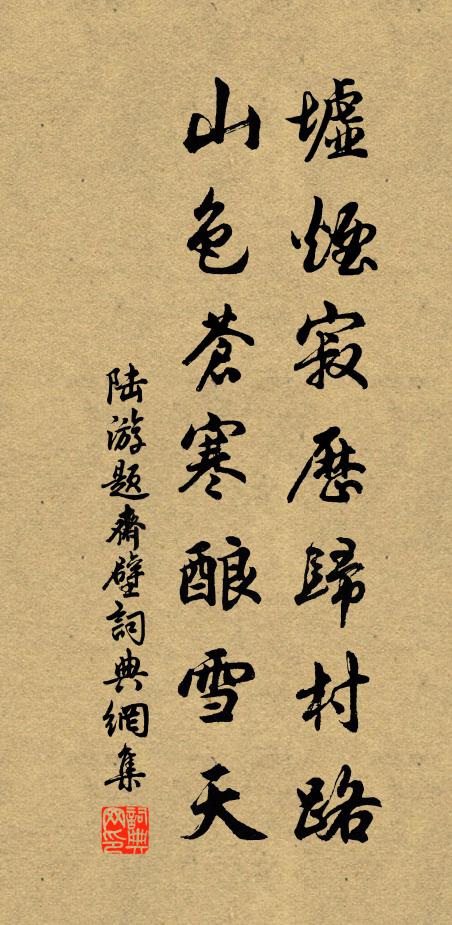 墟煙寂歷歸村路
山色蒼寒酿雪天
陆游题齋壁詞典網集
詞典網印